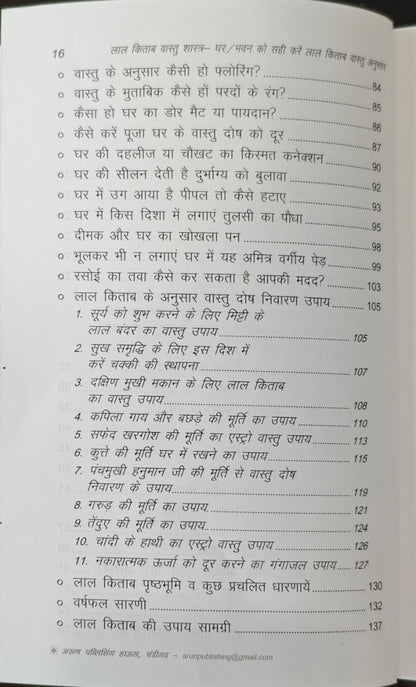 16 लाल किताब वास्तु शास्त्र– घर/भवन को सही करें लाल किताब वास्तु अनुसार
वास्तु के अनुसार कैसी हो फ्लोरिंग? 84
वास्तु के मुताबिक कैसे हों परदों के रंग? 85
कैसा हो घर का डोर मैट या पायदान? 86
कैसे करें पूजा घर के वास्तु दोष को दूर 87
घर की दहलीज या चौखट का किस्मत कनेक्शन 90
घर की सीलन देती है दुर्भाग्य को बुलावा 92
घर में उग आया है पीपल तो कैसे हटाए 93
घर में किस दिशा में लगाएं तुलसी का पौधा 95
दीमक और घर का खोखला पन 98
भूलकर भी न लगाएं घर में यह अमित्र वर्गीय पेड़ 99
रसोई का तवा कैसे कर सकता है आपकी मदद? 103
लाल किताब के अनुसार वास्तु दोष निवारण उपाय 105
1. सूर्य को शुभ करने के लिए मिट्टी के
लाल बंदर का वास्तु उपाय 105
2. सुख समृद्धि के लिए इस दिश में
करें चक्की की स्थापना 107
3. दक्षिण मुखी मकान के लिए लाल किताब
का वास्तु उपाय 108
4. कपिला गाय और बछड़े की मूर्ति का उपाय 110
5. सफेद खरगोश की मूर्ति का एस्ट्रो वास्तु उपाय 113
6. कुत्ते की मूर्ति घर में रखने का उपाय 115
7. पंचमुखी हनुमान जी की मूर्ति से वास्तु दोष
निवारण के उपाय 119
8. गरुड़ की मूर्ति का उपाय 121
9. तेंदुए की मूर्ति का उपाय 124
10. चांदी के हाथी का एस्ट्रो वास्तु उपाय 126
11. नकारात्मक ऊर्जा को दूर करने का गंगाजल उपाय 127
लाल किताब पृष्ठभूमि व कुछ प्रचलित धारणायें 130
वर्षफल सारणी 132
लाल किताब की उपाय सामग्री 137
अरुण पब्लिशिंग हाऊस, चंडीगढ – arunpublishing@gmail.com